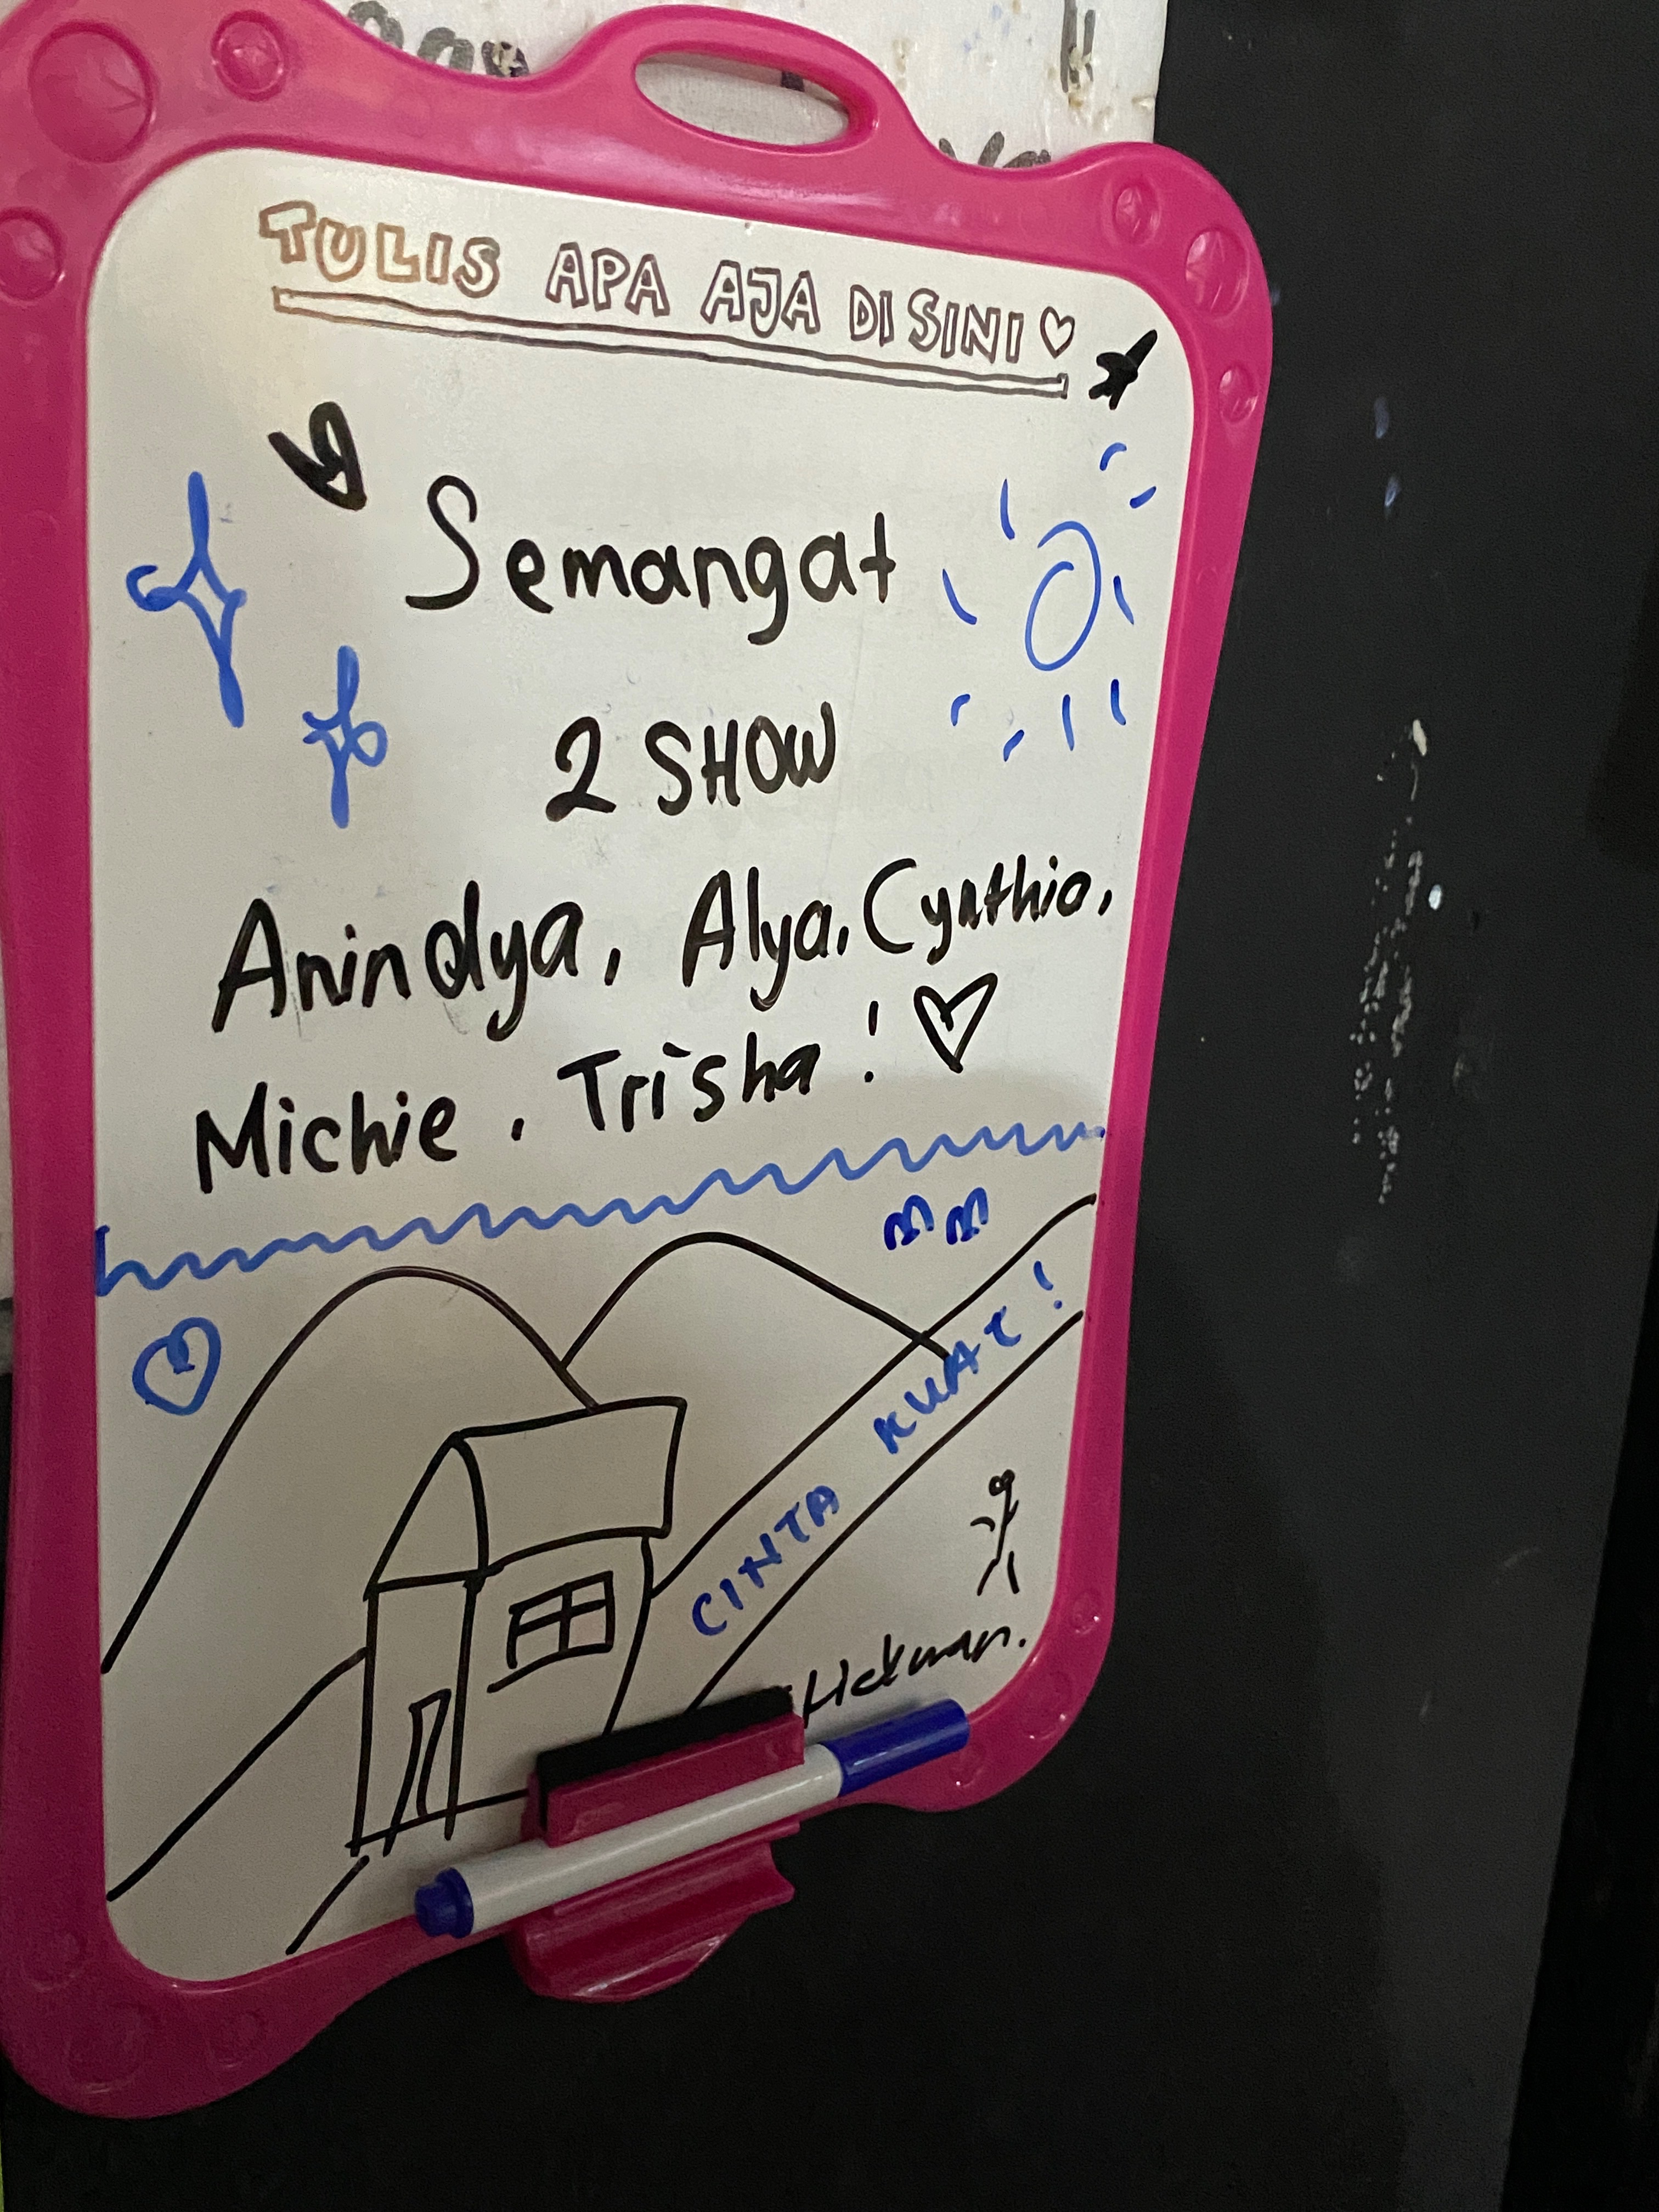 TULIS APA AJA DISINI
Semangat
2 SHOW
Anindya, Alya, Cynthia,
Michie, Trisha!
CINTA KUAT!